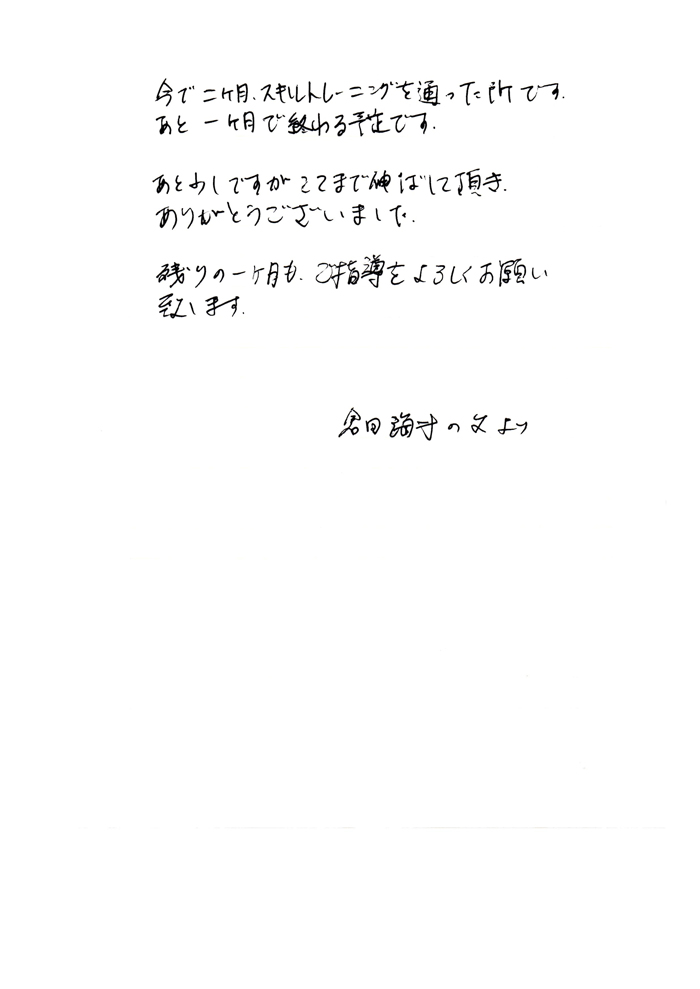 今で二ヶ月、スキルトレーニングを通った所です.
あと一ヶ月で終わる予定です.
あと少しですがここまで伸ばして頂き.
ありがとうございました.
残りの一ヶ月も、ご指導をよろしくお願い
致します.
倉田海斗の父より